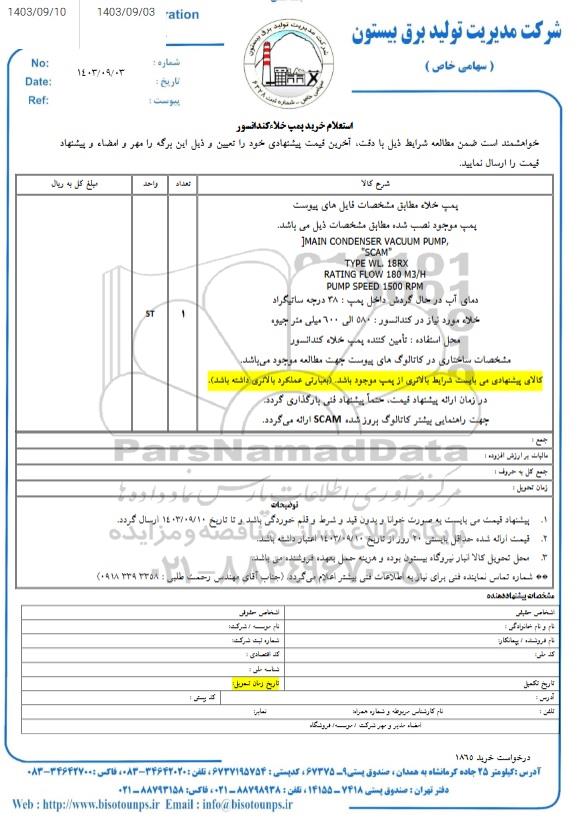 1403/09/10
1403/09/03
ration
شرکت مدیریت تولید برق بیستون
( سهامی خاص )
سهامی خاص - شماره ثبت ۶۲۷۸
No:
شماره :
Date:
۱۴۰۳/۰۹/۰۳
تاریخ :
Ref:
پیوست :
استعلام خرید پمپ خلاءکندانسور
خواهشمند است ضمن مطالعه شرایط ذیل با دقت، آخرین قیمت پیشنهادی خود را تعیین و ذیل این برگه را مهر و امضاء و پیشنهاد
قیمت را ارسال نمایید.
شرح کالا
تعداد
واحد
مبلغ کل به ریال
پمپ خلاء مطابق مشخصات فایل های پیوست
پمپ موجود نصب شده مطابق مشخصات ذیل می باشد.
]MAIN CONDENSER VACUUM PUMP,
"SCAM"
TYPE WL. 18RX
RATING FLOW 180 M3/H
PUMP SPEED 1500 RPM
دمای آب در حال گردش داخل پمپ : ۳۸ درجه سانیگراد
خلاء مورد نیاز در کندانسور : ۵۸۰ الی ۶۰۰ میلی متر جیوه
محل استفاده : تأمین کننده پمپ خلاء کندانسور
مشخصات ساختاری در کاتالوگ های پیوست جهت مطالعه موجود می‌باشد.
کالای پیشنهادی می بایست شرایط بالاتری از پمپ موجود باشد. (بعبارتی عملکرد بالاتری داشته باشد).
در زمان ارائه پیشنهاد قیمت، حتماً پیشنهاد فنی بارگذاری گردد.
جهت راهنمایی بیشتر کاتالوگ بروز شده SCAM ارائه می‌گردد.
۱
ST
جمع :
مالیات بر ارزش افزوده :
جمع کل به حروف :
زمان تحویل :
توضیحات
۱. پیشنهاد قیمت می بایست به صورت خوانا و بدون قید و شرط و قلم خوردگی باشد و تا تاریخ ۱۴۰۳/۰۹/۱۰ ارسال گردد.
۲. قیمت ارائه شده حداقل بایستی ۲۰ روز از تاریخ ۱۴۰۳/۰۹/۱۰ اعتبار داشته باشد.
۳. محل تحویل کالا انبار نیروگاه بیستون بوده و هزینه حمل بعهده فروشنده می باشد.
** شماره تماس نماینده فنی برای نیاز به اطلاعات فنی بیشتر اعلام می‌گردد. (جناب آقای مهندس رحمت طلبی : ۳۳۵۸ ۳۳۹ ۰۹۱۸)
ParsNamadData
مرکز فرآوری اطلاعات پارس نماد داده ها
پایگاه اطلاع رسانی مناقصه و مزایده
۰۲۱-۸۸۳۴۹۶۷۰-۵
مشخصات پیشنهاددهنده
اشخاص حقیقی
اشخاص حقوقی
نام و نام خانوادگی :
نام موسسه / شرکت:
نام فروشنده / پیمانکار:
شماره ثبت شرکت:
کد ملی:
کد اقتصادی :
شناسه ملی :
تاریخ تکمیل
تاریخ زمان تحویل:
آدرس :
کد پستی :
تلفن :
نام کارشناس مربوطه و شماره همراه:
نمابر:
امضاء مدیر و مهر شرکت / موسسه/ فروشگاه
درخواست خرید ۱۸۶۵
آدرس: کیلومتر ۲۵ جاده کرمانشاه به همدان ، صندوق پستی۹ـ ۶۷۳۷۵ ، کدپستی : ۶۷۳۷۱۹۵۷۵۴ ، تلفن : ۳۴۶۴۲۰۲۰-۰۸۳، فاکس: ۳۴۶۴۲۷۰۰-۰۸۳
دفتر تهران : صندوق پستی ۷۴۱۸ - ۱۴۱۵۵ ، تلفن : ۸۸۷۹۸۹۳۸-۰۲۱ ، فاکس : ۸۸۷۹۳۱۵۸-۰۲۱
Web : http://www.bisotounps.ir Email : info@bisotounps.ir